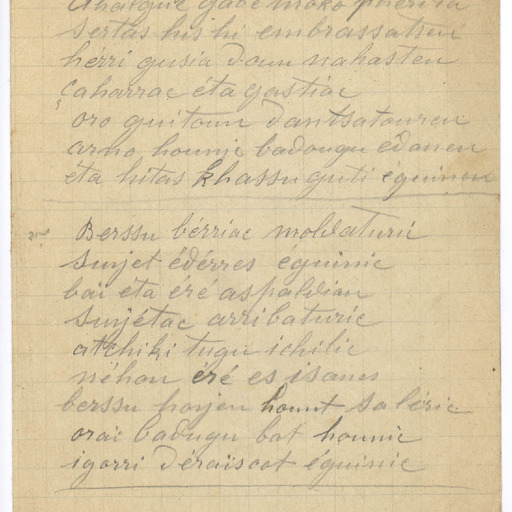 Ahalguc gabe moko pherdia
sertas hishi embrassatien
hérri gusia doun nahasten
çaharrac éta gastiac
oro guitoun dantsatouren
arno hounic badougu édanen
éta hitas khassu guti éguinen
2me Berssu bérriac moldaturic
sujet édérres éguinic
bai eta eré aspaldian
sujétac arribaturic
atchiki tugu ichilic
néhon éré es isanes
berssu horjen hount saléric
orai badugu bat hounic
igorri déraiscot éguinic